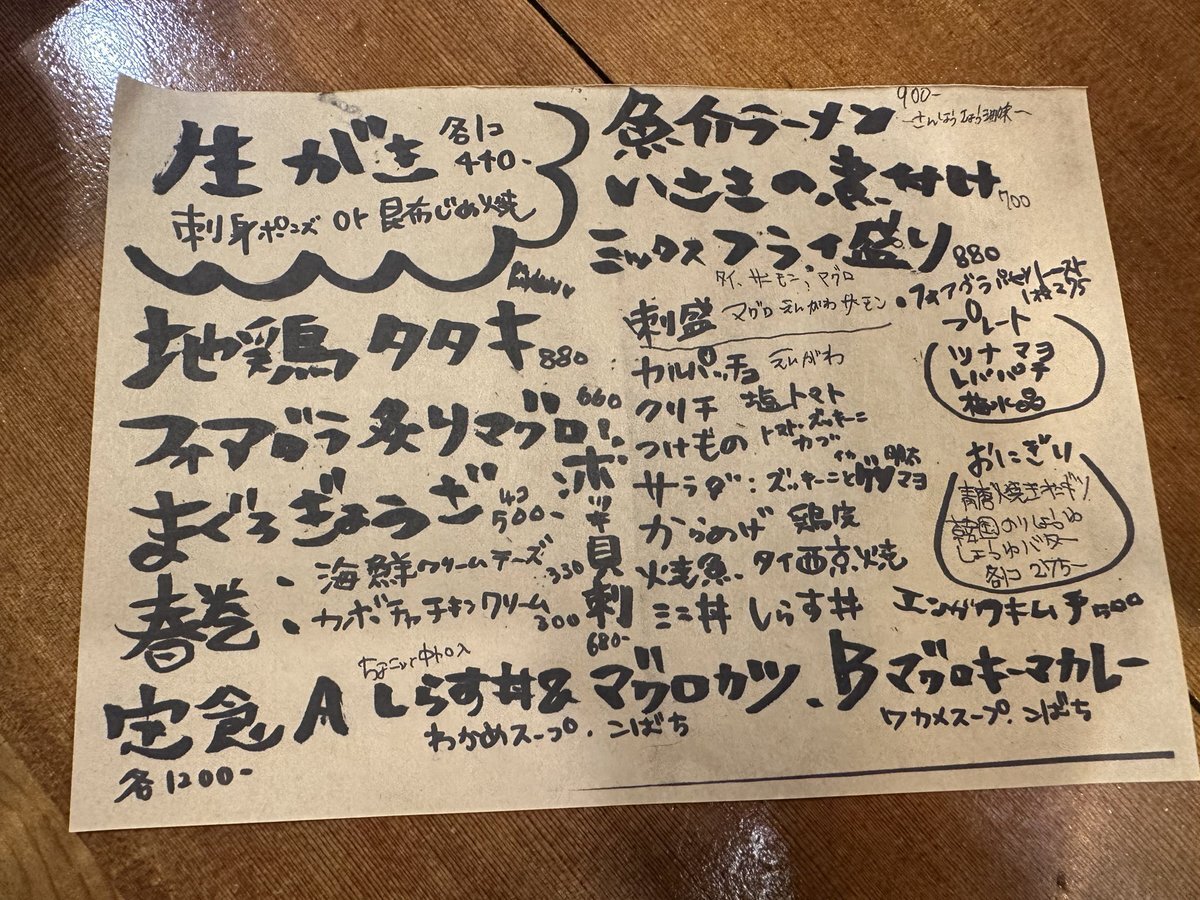 生がき 各1コ 440-
刺身ポンズ or 昆布じめ焼
地鶏タタキ 880
フォアグラ炙りマグロ 660
まぐろぎょうざ 4コ 500-
春巻 ・海鮮クリームチーズ 330
・カボチャチキンクリーム 300
ホッキ貝刺 680-
魚介ラーメン 900-
いさきの煮付け 700
ミックスフライ盛り 880
タイ、サーモン、マグロ
刺盛 マグロ えんがわ サーモン
カルパッチョ えんがわ
クリチ 塩トマト
つけもの トマト・ズッキーニ
カブ
サラダ:ズッキーニと 明太
マヨ
からあげ 鶏皮
火焼魚 タイ西京焼
ミニ丼 しらす丼
・フォアグラ 1枚275
プレート
ツナマヨ
レバパテ
梅水晶
おにぎり
韓国のりしょうゆ
しょうゆバター
各1コ 275-
エンガワキムチ 500
定食 A しらす丼&マグロカツ、B マグロキーマカレー
わかめスープ・こばち
ワカメスープ・こばち
各1200-